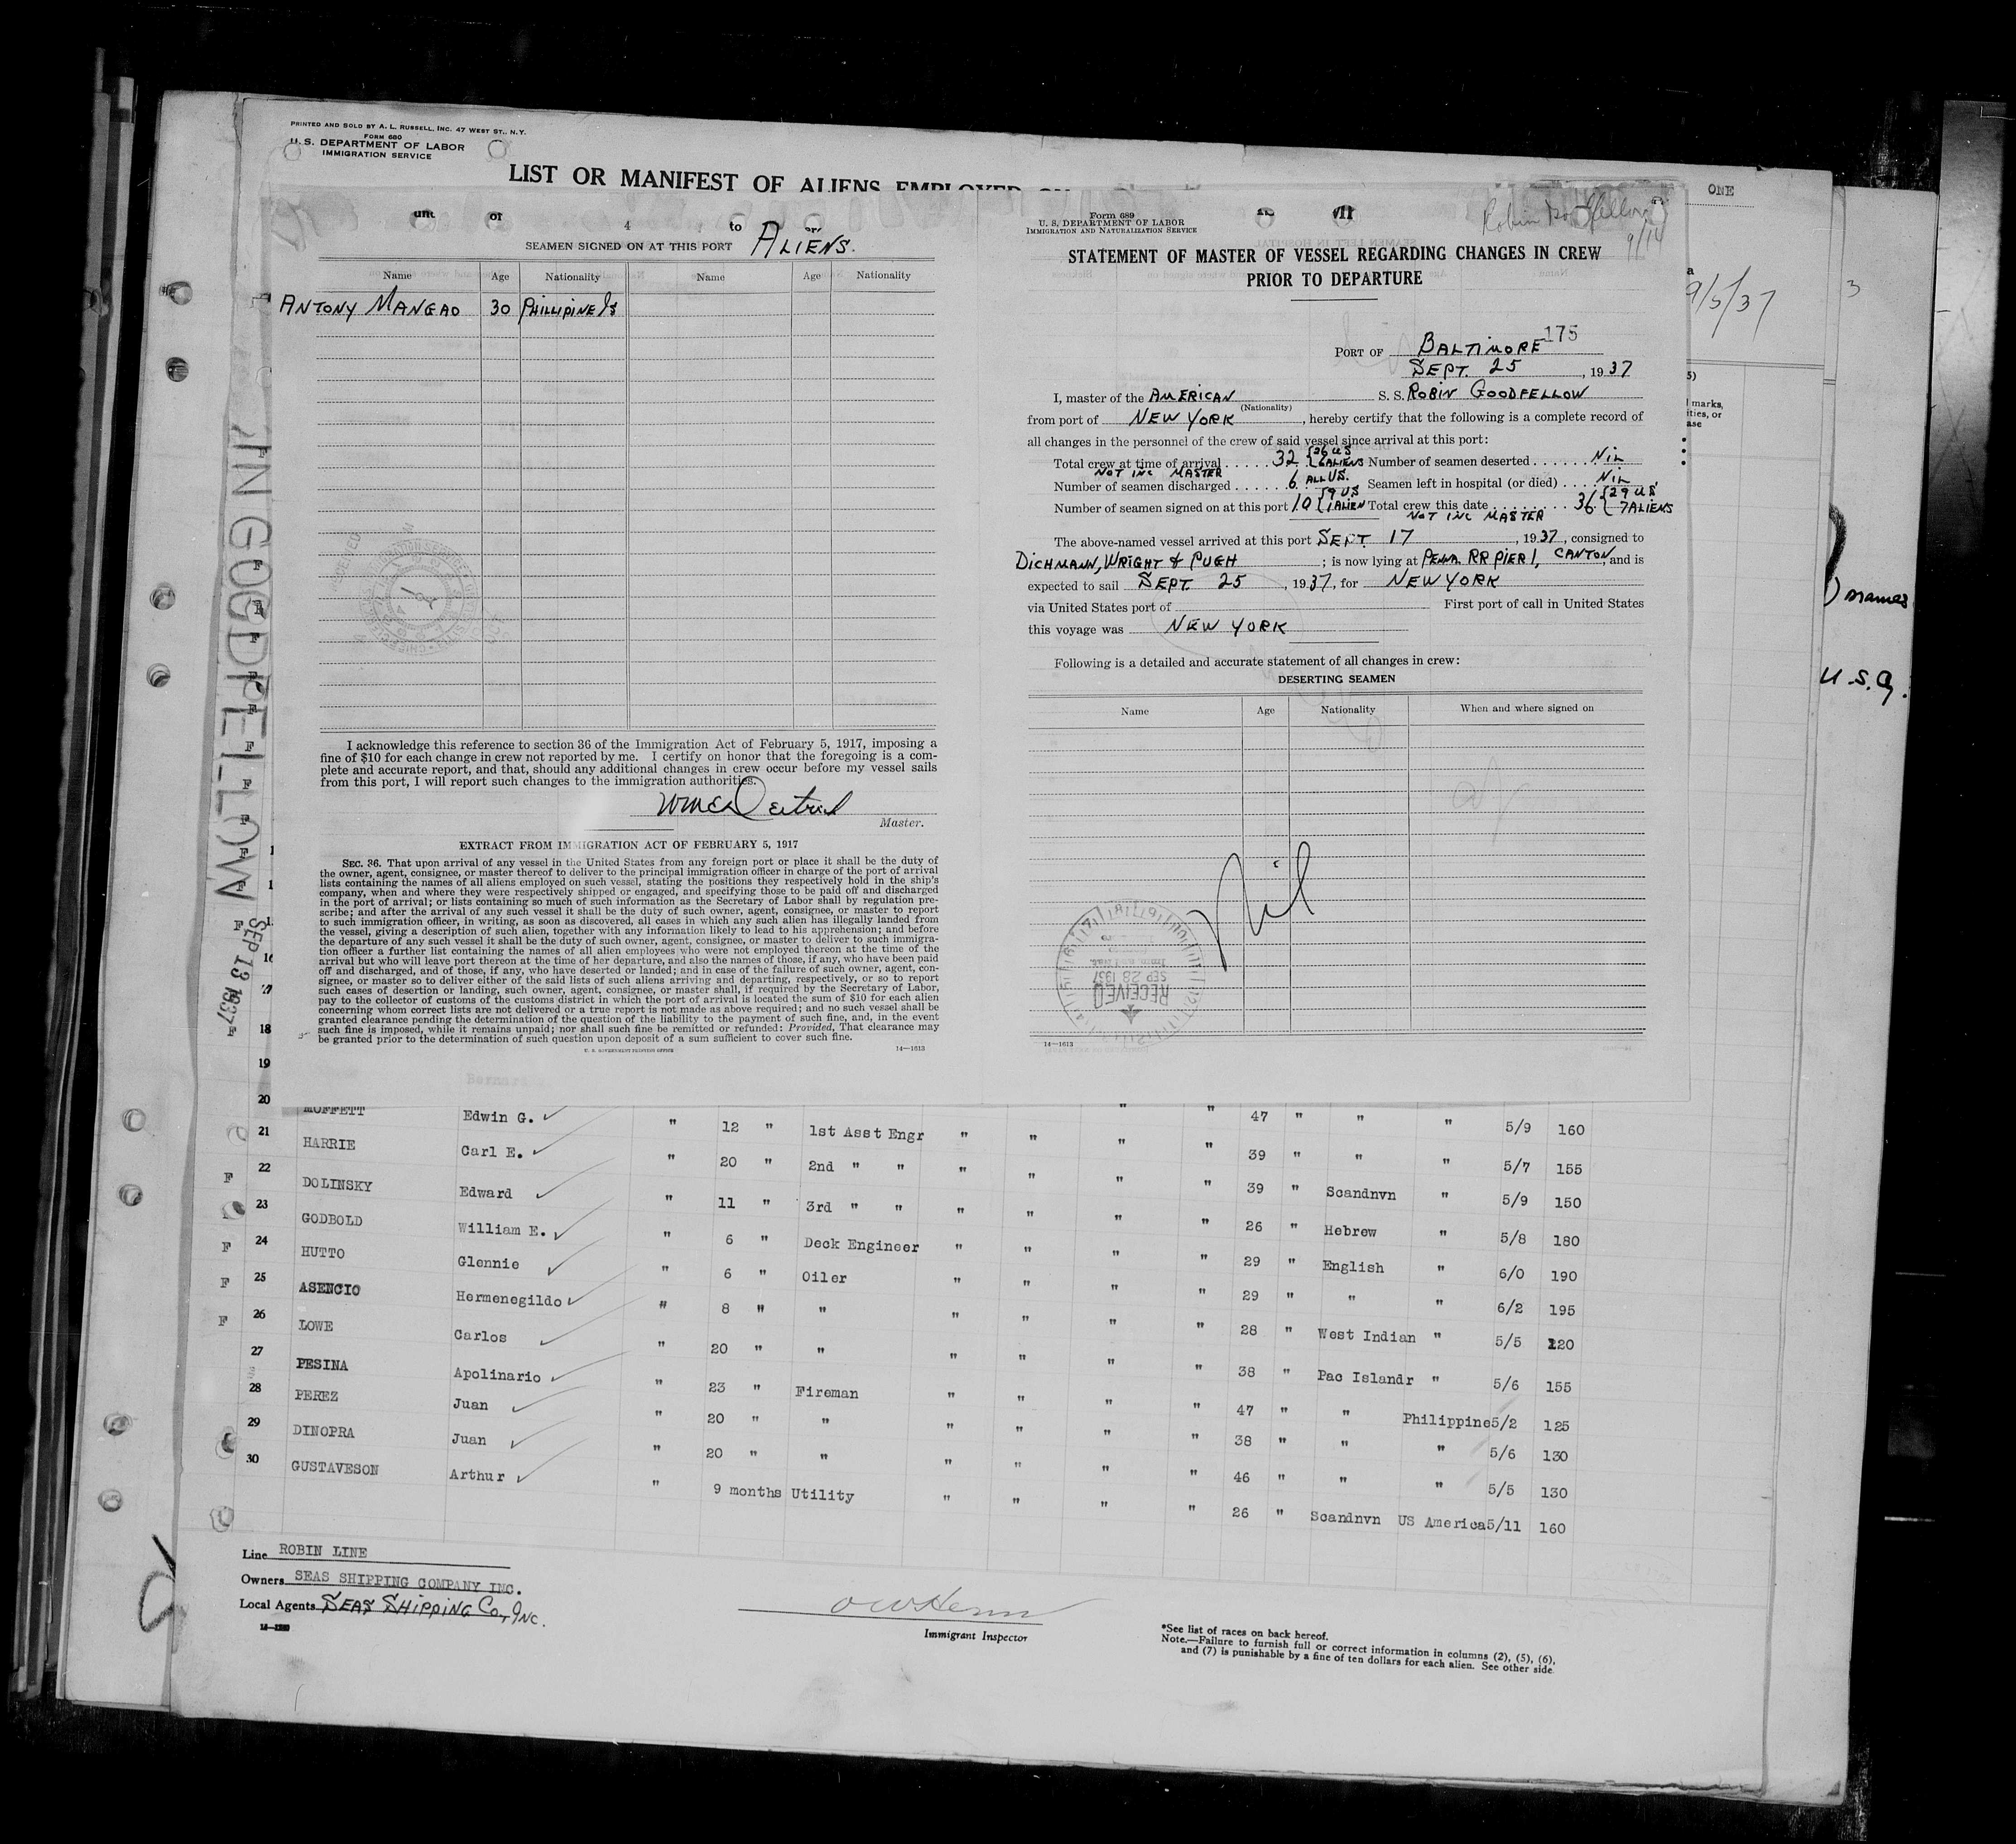 PRINTED AND SOLD BY A. L. RUSSELL, INC. 47 WEST ST., N.Y.
FORM 680
U.S. DEPARTMENT OF LABOR
IMMIGRATION SERVICE
LIST OR MANIFEST OF ALIENS EMPLOYED ON
ONE
4
to
SEAMEN SIGNED ON AT THIS PORT ALIENS.
Name Age Nationality Name Age Nationality
ANTONY MANGAO 30 PHILLIPINE Is
I acknowledge this reference to section 36 of the Immigration Act of February 5, 1917, imposing a
fine of $10 for each change in crew not reported by me. I certify on honor that the foregoing is a com-
plete and accurate report, and that, should any additional changes in crew occur before my vessel sails
from this port, I will report such changes to the immigration authorities.
Master.
EXTRACT FROM IMMIGRATION ACT OF FEBRUARY 5, 1917
SEC. 36. That upon arrival of any vessel in the United States from any foreign port or place it shall be the duty of
the owner, agent, consignee, or master thereof to deliver to the principal immigration officer in charge of the port of arrival
lists containing the names of all aliens employed on such vessel, stating the positions they respectively hold in the ship's
company, when and where they were respectively shipped or engaged, and specifying those to be paid off and discharged
in the port of arrival; or lists containing so much of such information as the Secretary of Labor shall by regulation pre-
scribe; and after the arrival of any such vessel it shall be the duty of such owner, agent, consignee, or master to report
to such immigration officer, in writing, as soon as discovered, all cases in which any such alien has illegally landed from
the vessel, giving a description of such alien, together with any information likely to lead to his apprehension; and before
the departure of any such vessel it shall be the duty of such owner, agent, consignee, or master to deliver to such immigra-
tion officer a further list containing the names of all alien employees who were not employed thereon at the time of the
arrival but who will leave port thereon at the time of her departure, and also the names of those, if any, who have been paid
off and discharged, and of those, if any, who have deserted or landed; and in case of the failure of such owner, agent, con-
signee, or master so to deliver either of the said lists of such aliens arriving and departing, respectively, or so to report
such cases of desertion or landing, such owner, agent, consignee, or master shall, if required by the Secretary of Labor,
pay to the collector of customs of the customs district in which the port of arrival is located the sum of $10 for each alien
concerning whom correct lists are not delivered or a true report is not made as above required; and no such vessel shall be
granted clearance pending the determination of the question of the liability to the payment of such fine, and, in the event
such fine is imposed, while it remains unpaid; nor shall such fine be remitted or refunded: Provided, That clearance may
be granted prior to the determination of such question upon deposit of a sum sufficient to cover such fine.
U. S. GOVERNMENT PRINTING OFFICE 14—1613
Form 689
U. S. DEPARTMENT OF LABOR
IMMIGRATION AND NATURALIZATION SERVICE
Robin Goodfellow
9/14
STATEMENT OF MASTER OF VESSEL REGARDING CHANGES IN CREW
PRIOR TO DEPARTURE
175
PORT OF BALTIMORE
SEPT. 25, 1937
I, master of the AMERICAN S. S. ROBIN GOODFELLOW
(Nationality)
from port of NEW YORK, hereby certify that the following is a complete record of
all changes in the personnel of the crew of said vessel since arrival at this port:
Total crew at time of arrival ..... 32 {26 US 6 ALIENS Number of seamen deserted ...... NIL
NOT INC MASTER
Number of seamen discharged ...... 6 ALL US. Seamen left in hospital (or died) .... NIL
Number of seamen signed on at this port 10 {9 US 1 ALIEN Total crew this date ........ 36 {29 US 7 ALIENS
NOT INC MASTER
The above-named vessel arrived at this port SEPT. 17, 1937, consigned to
DICHMANN, WRIGHT & PUGH; is now lying at PENNA. RR PIER 1, CANTON, and is
expected to sail SEPT. 25, 1937, for NEW YORK
via United States port of First port of call in United States
this voyage was NEW YORK
Following is a detailed and accurate statement of all changes in crew:
DESERTING SEAMEN
Name Age Nationality When and where signed on
Nil
RECEIVED
SEP 28 1937
14—1613
9/5/37
3
marks,
ities, or
ase
names
U.S.A.
IN GOODFELLOW
SEP 13 1937
18
19
20 MOFFETT Edwin G. " 12 " 1st Asst Engr " " " " 47 " " " 5/9 160
21 HARRIE Carl E. " 20 " 2nd " " " " " " 39 " " " 5/7 155
22 DOLINSKY Edward " 11 " 3rd " " " " " " 39 " Scandnvn " 5/9 150
23 GODBOLD William E. " 6 " Deck Engineer " " " " 26 " Hebrew " 5/8 180
24 HUTTO Glennie " 6 " Oiler " " " " 29 " English " 6/0 190
25 ASENCIO Hermenegildo " 8 " " " " " " 29 " " " 6/2 195
26 LOWE Carlos " 20 " " " " " " 28 " West Indian " 5/5 120
27 PESINA Apolinario " 23 " Fireman " " " " 38 " Pac Islandr " 5/6 155
28 PEREZ Juan " 20 " " " " " " 47 " " Philippine 5/2 125
29 DINOPRA Juan " 20 " " " " " " 38 " " " 5/6 130
30 GUSTAVESON Arthur " 9 months Utility " " " " 46 " " " 5/5 130
26 " Scandnvn US America 5/11 160
Line ROBIN LINE
Owners SEAS SHIPPING COMPANY INC.
Local Agents SEAS SHIPPING Co., INC.
Immigrant Inspector
*See list of races on back hereof.
Note.—Failure to furnish full or correct information in columns (2), (5), (6),
and (7) is punishable by a fine of ten dollars for each alien. See other side